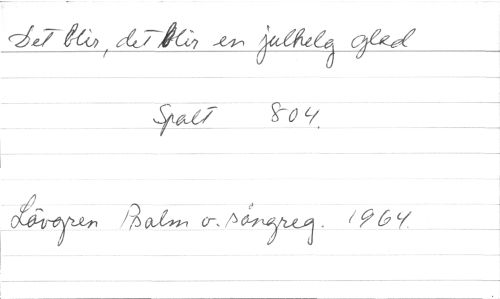 Det blir, det blir en julhelg glad
Spalt 804.
Lövgren Psalm o. sångreg. 1964.